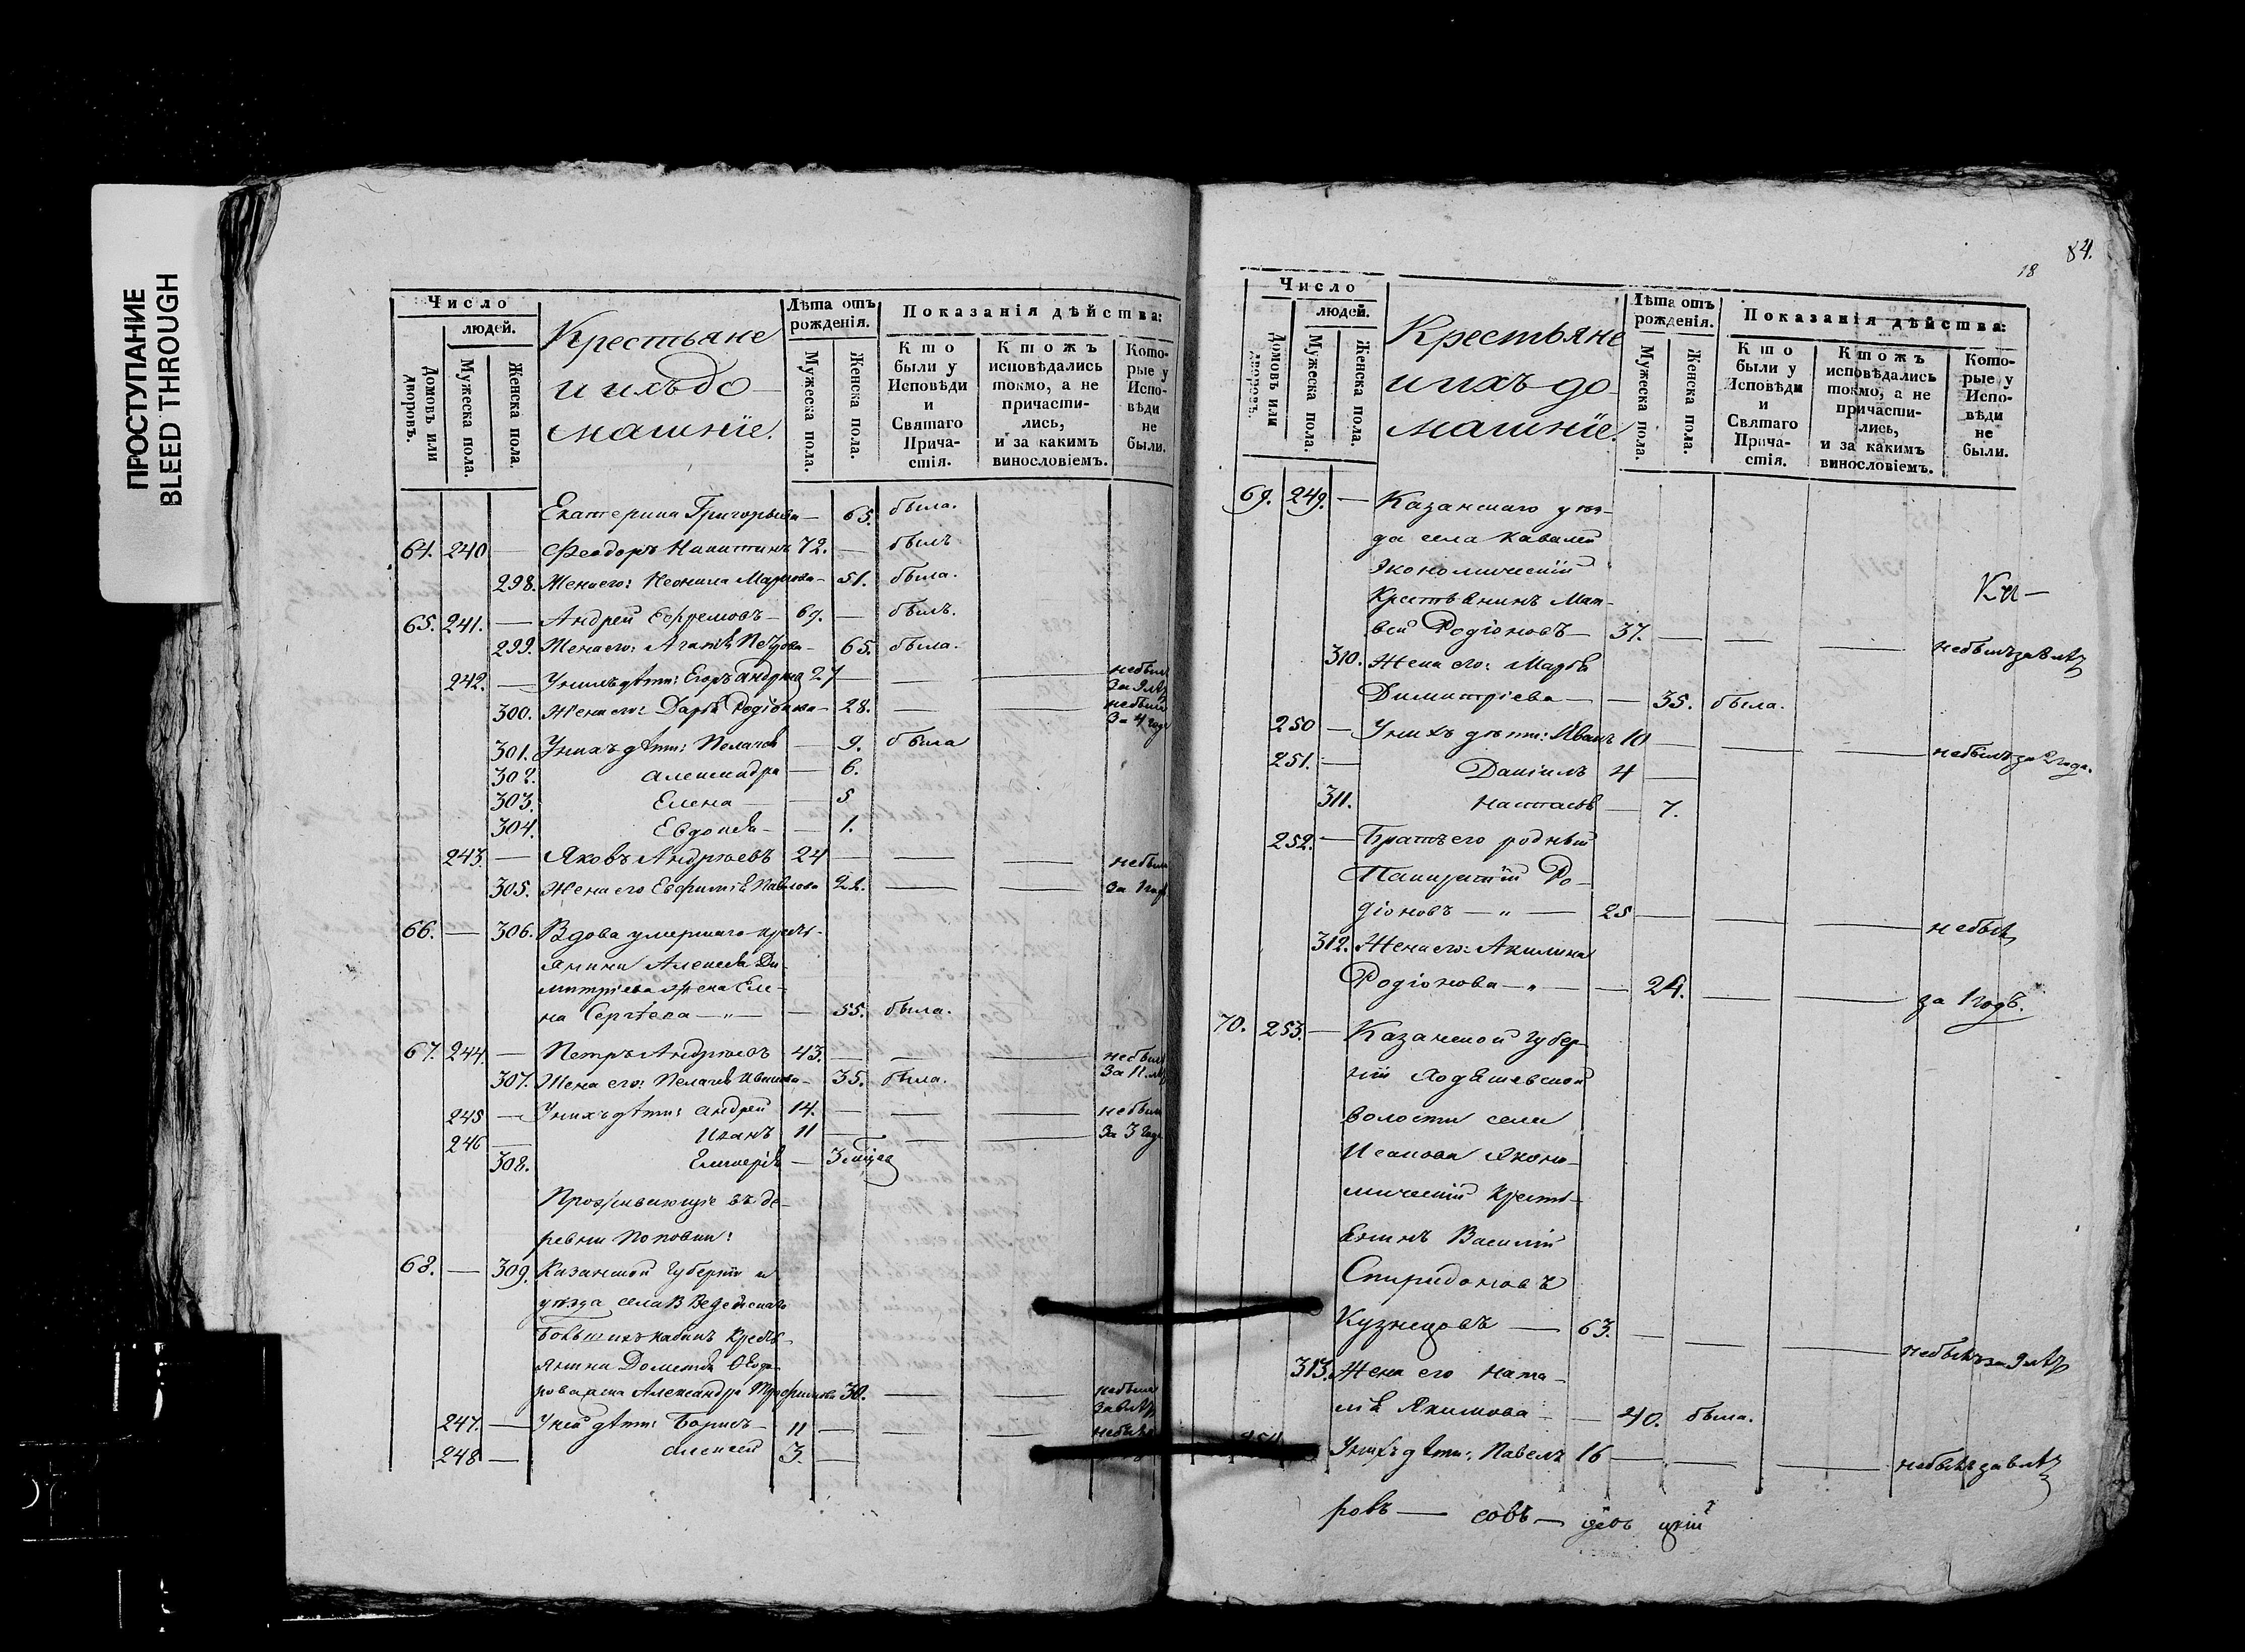 ПРОСТУПАНИЕ
BLEED THROUGH
Число
людей.
Домовъ или дворовъ.
Мужеска пола.
Женска пола.
Крестьяне
и ихъ до-
машнїе.
Лѣта отъ рожденія.
Мужеска пола.
Женска пола.
Показанія дѣйства:
Кто были у Исповѣди и Святаго Причастія.
Ктожъ исповѣдались токмо, а не причастились, и за какимъ винословіемъ.
Которые у Исповѣди не были.
Екатерина Григорьева — 65. была.
64. 240 — Феодоръ Никитинъ 72. — былъ
298. Жена его: Неонила Маркова — 51. была.
65. 241. — Андрей Ефремовъ — 69. — былъ.
299. Жена его: Агафія Петрова — 65. была.
242. — У нихъ дѣти: Егоръ Андреевъ 27 — — — небылъ
за 9 лѣтъ
300. Жена его: Дарья Родіонова — 28. — — небыла
за 4 года
301. У нихъ дѣти: Пелагея — 9. была
302. Александра — 6.
303. Елена — 5
304. Евдокія — 1.
243. — Яковъ Андреевъ 24 — — — небыли
305. Жена его Евфимія Павлова 22. — — за 1 годъ
66. — 306. Вдова умершаго кресть-
янина Алексея Ди-
митріева жена Еле-
на Сергѣева — „ — — 55. была.
67. 244 — Петръ Андреевъ 43. — — — небылъ
за 11. лѣтъ
307. Жена его: Пелагея Иванова — 35. была.
245 — У нихъ дѣти: Андрей 14. — — — небыли
246 — Иванъ 11 — — — за 3 года
308. Гликерія — 3 мѣсяца
Проживающіе въ де-
ревни Поповки:
68. — 309. Казанской Губерніи и
уѣзда села Введенскаго
Большихъ кабанъ кресть-
янина Дометія Ѳеодо-
рова жена Александра Трофимова 30. — — небыла
247. — У ней дѣти: Борисъ — 11 — — — небылъ
248 — Алексей 3. —
84.
18
Число
людей.
Домовъ или дворовъ.
Мужеска пола.
Женска пола.
Крестьяне
и ихъ до-
машнїе.
Лѣта отъ рожденія.
Мужеска пола.
Женска пола.
Показанія дѣйства:
Кто были у Исповѣди и Святаго Причастія.
Ктожъ исповѣдались токмо, а не причастились, и за какимъ винословіемъ.
Которые у Исповѣди не были.
69. 249. — Казанскаго уѣз-
да села Кавалей
Экономическій
Крестьянинъ Мат-
вей Родіоновъ — 37. — — — небылъ за 8 лѣтъ
Ки —
310. Жена его: Марѳа
Димитріева — — 35. была.
250 — У нихъ дѣти: Иванъ 10 — — — небылъ за 2 года.
251. — Даніилъ 4 —
311. Настасья — 7.
252. — Братъ его родный
Панкратій Ро-
діоновъ — „ — 25 — — — небыли
312. Жена его: Акилина
Родіонова — „ — — 24. — — за 1 годъ.
70. 253. — Казанской Губер-
ніи
волости села
Исакова Эконо-
мическій Кресть-
янинъ Василій
Спиридоновъ
Кузнецовъ — 63. — — — небылъ за 9 лѣтъ
313. Жена его Ната-
лья Якимова — — 40. была.
254 У нихъ дѣти: Павелъ 16 — — — небылъ за 8 лѣтъ
ровъ — совъ —